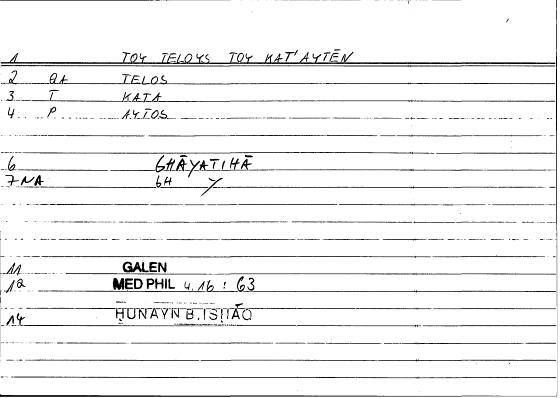 1 TOY TELOYS TOY KAT'AYTĒN
2 QA TELOS
3 T KATA
4 P AYTOS
6 GHĀYATIHĀ
7 NA GH Y
11 GALEN
12 MED PHIL 4.16 : 63
14 ḤUNAYN B. ISḤĀQ